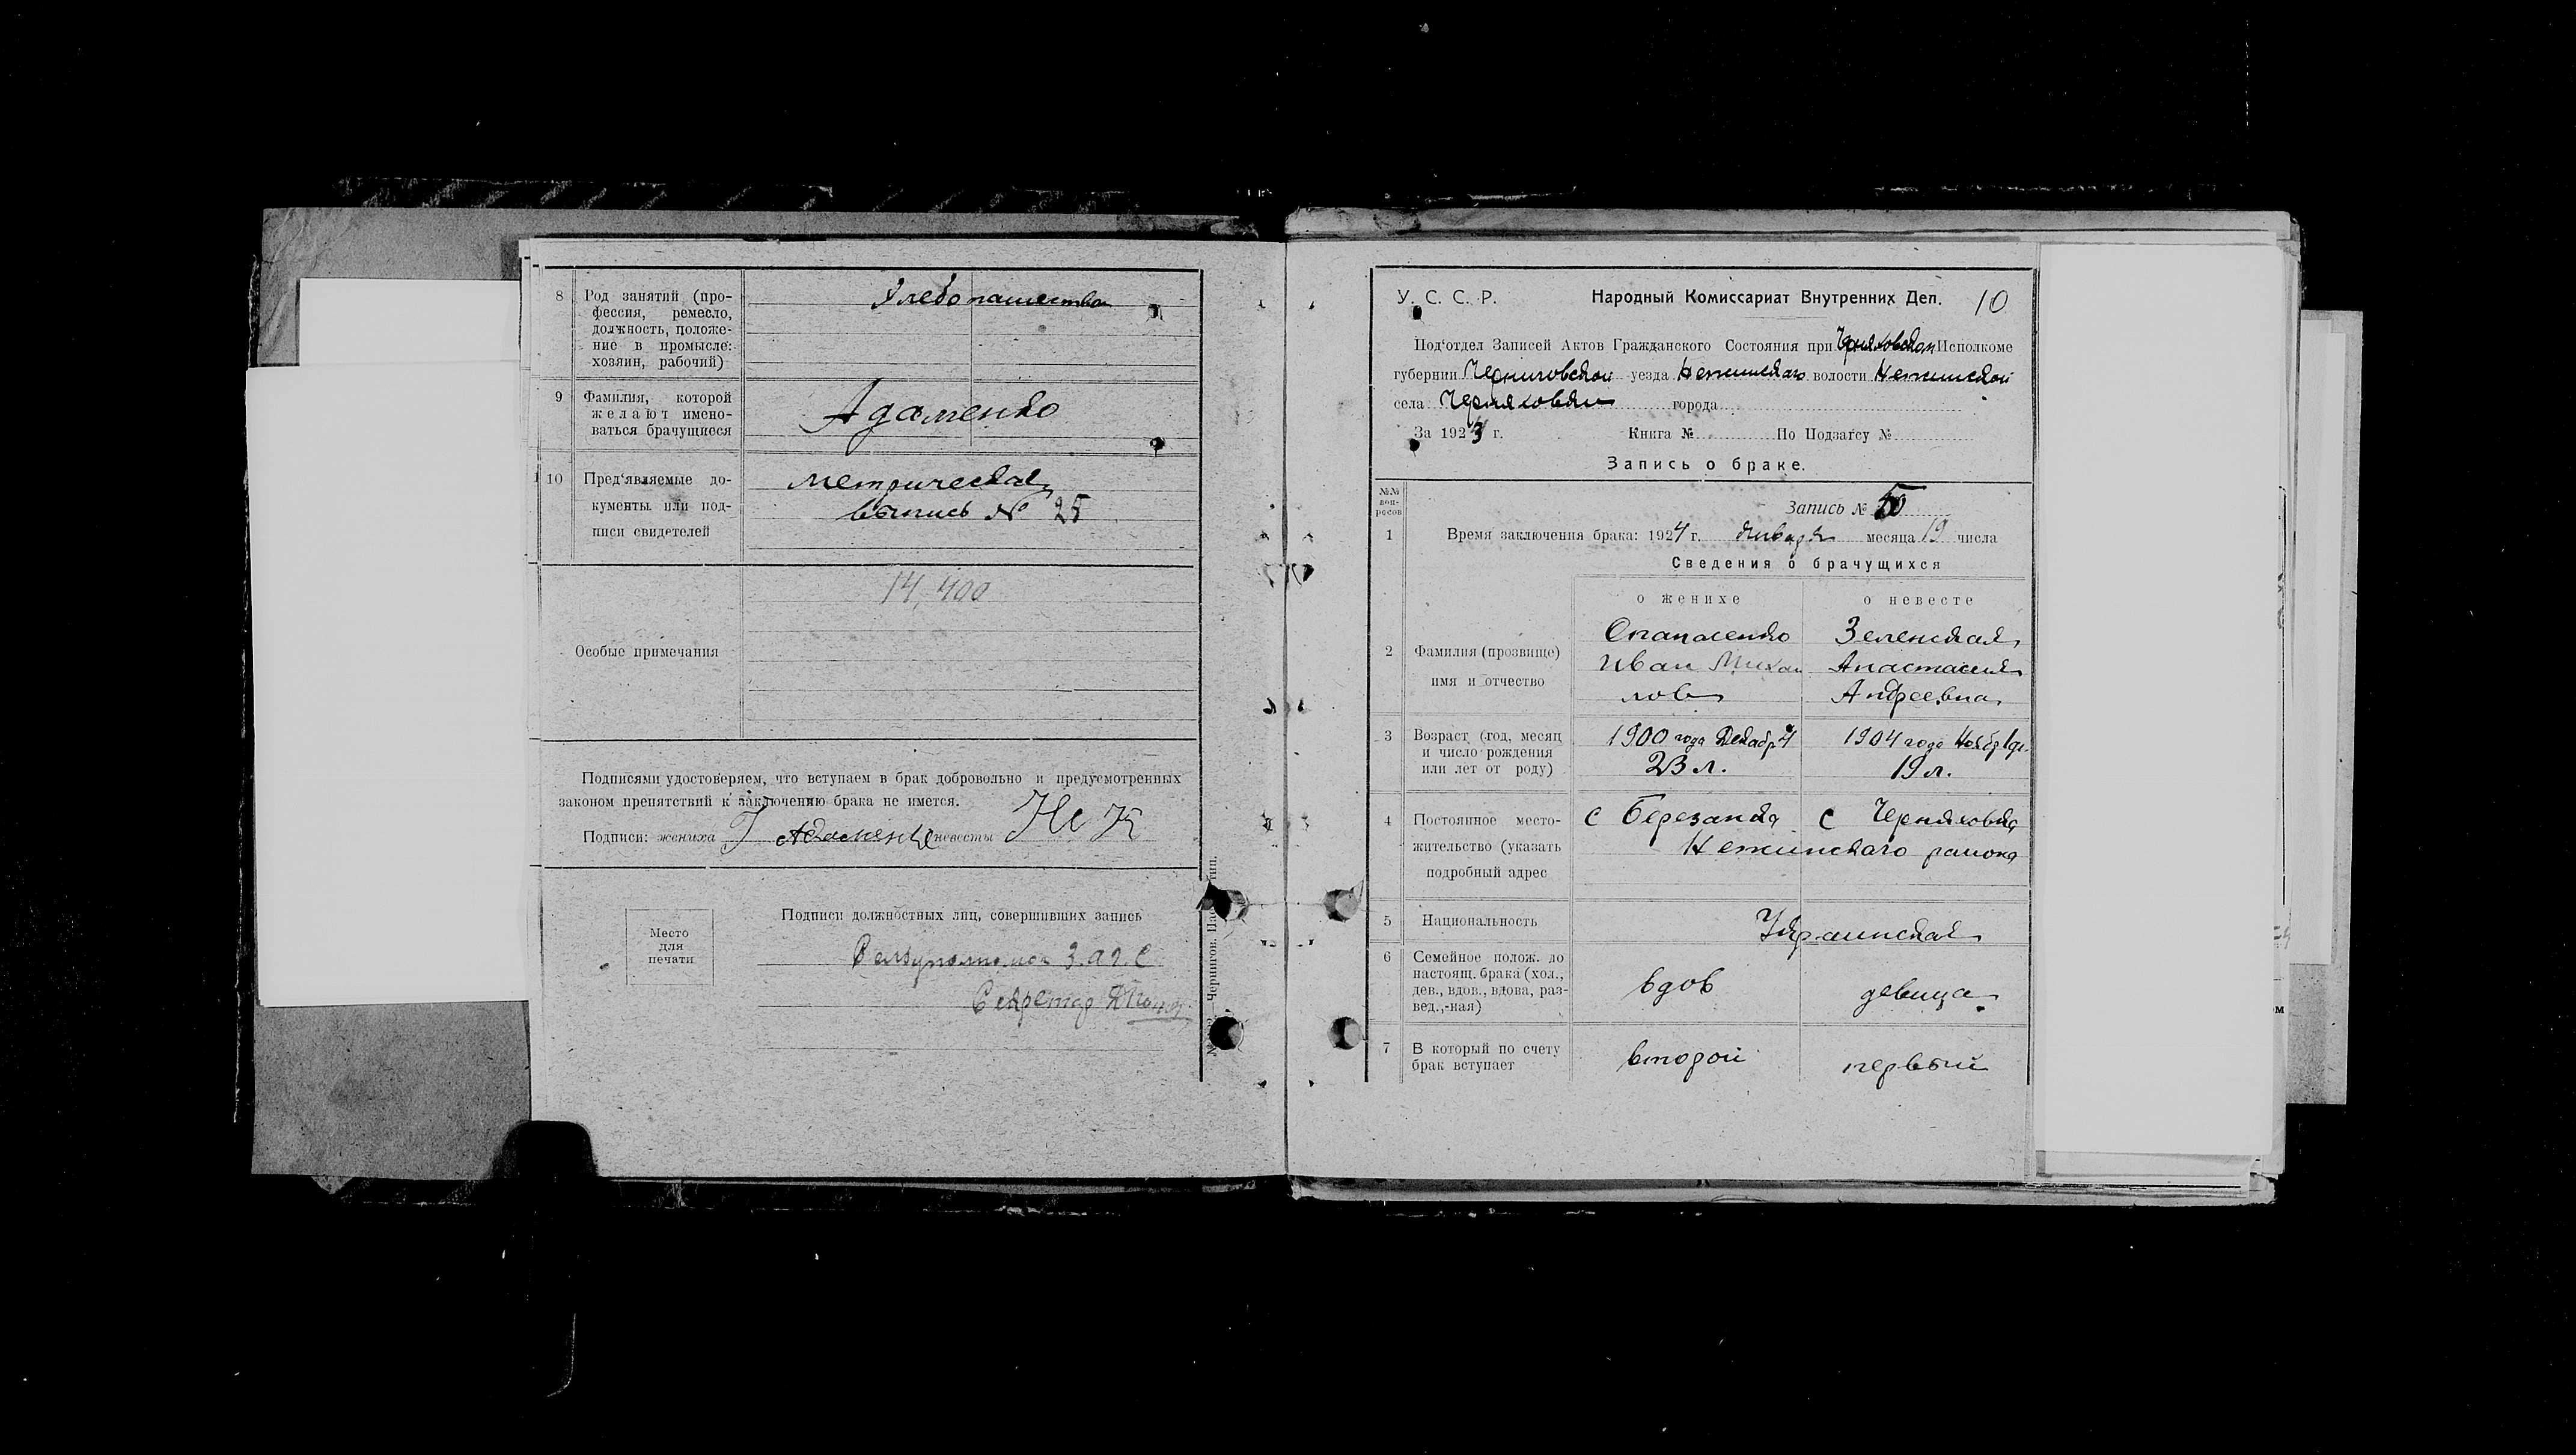 8 Род занятий (про-
фессия, ремесло,
должность, положе-
ние в промысле:
хозяин, рабочий)
Хлебопашество
9 Фамилия, которой
желают имено-
ваться брачущиеся
Адаменко
10 Пред'являемые до-
кументы или под-
писи свидетелей
метрическая
выпись № 25
Особые примечания
14,400
Подписями удостоверяем, что вступаем в брак добровольно и предусмотренных
законом препятствий к заключению брака не имется.
Подписи: жениха Адаменко невесты
Место
для
печати
Подписи должностных лиц, совершивших запись
Секретар
Чернигов.
У. С. С. Р. Народный Комиссариат Внутренних Дел. 10
Под'отдел Записей Актов Гражданского Состояния при Черняховском Исполкоме
губернии Черниговской уезда Нежинскаго волости Нежинской
села Черняховки города
За 1924 г. Книга № По Подзагсу №
Запись о браке.
№№
воп-
росов
Запись №
1 Время заключения брака: 1924 г. января месяца 19 числа
Сведения о брачущихся
о женихе о невесте
2 Фамилия (прозвище)
имя и отчество
Иван Михаи
лов
Зеленская
Анастасия
Андреевна
3 Возраст (год, месяц
и число рождения
или лет от роду)
1900 года Декабр 4
23 л.
1904 года Нояб
19 л.
4 Постоянное место-
жительство (указать
подробный адрес
с Березанка с Черняховка
Нежинскаго района
5 Национальность
Украинская
6 Семейное полож. до
настоящ. брака (хол.,
дев., вдов., вдова, раз-
вед.,-ная)
вдов девица
7 В который по счету
брак вступает
второй первый